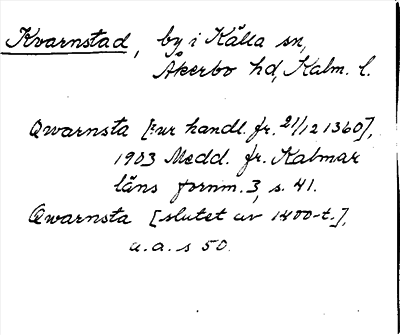 Kvarnstad, by i Källa sn,
Åkerbo hd, Kalm. l.
Qwarnsta [ur handl. fr. 21/12 1360],
1903 Medd. fr. Kalmar
läns fornm. 3, s. 41.
Qwarnsta [slutet av 1400-t.],
a.a. s 50.